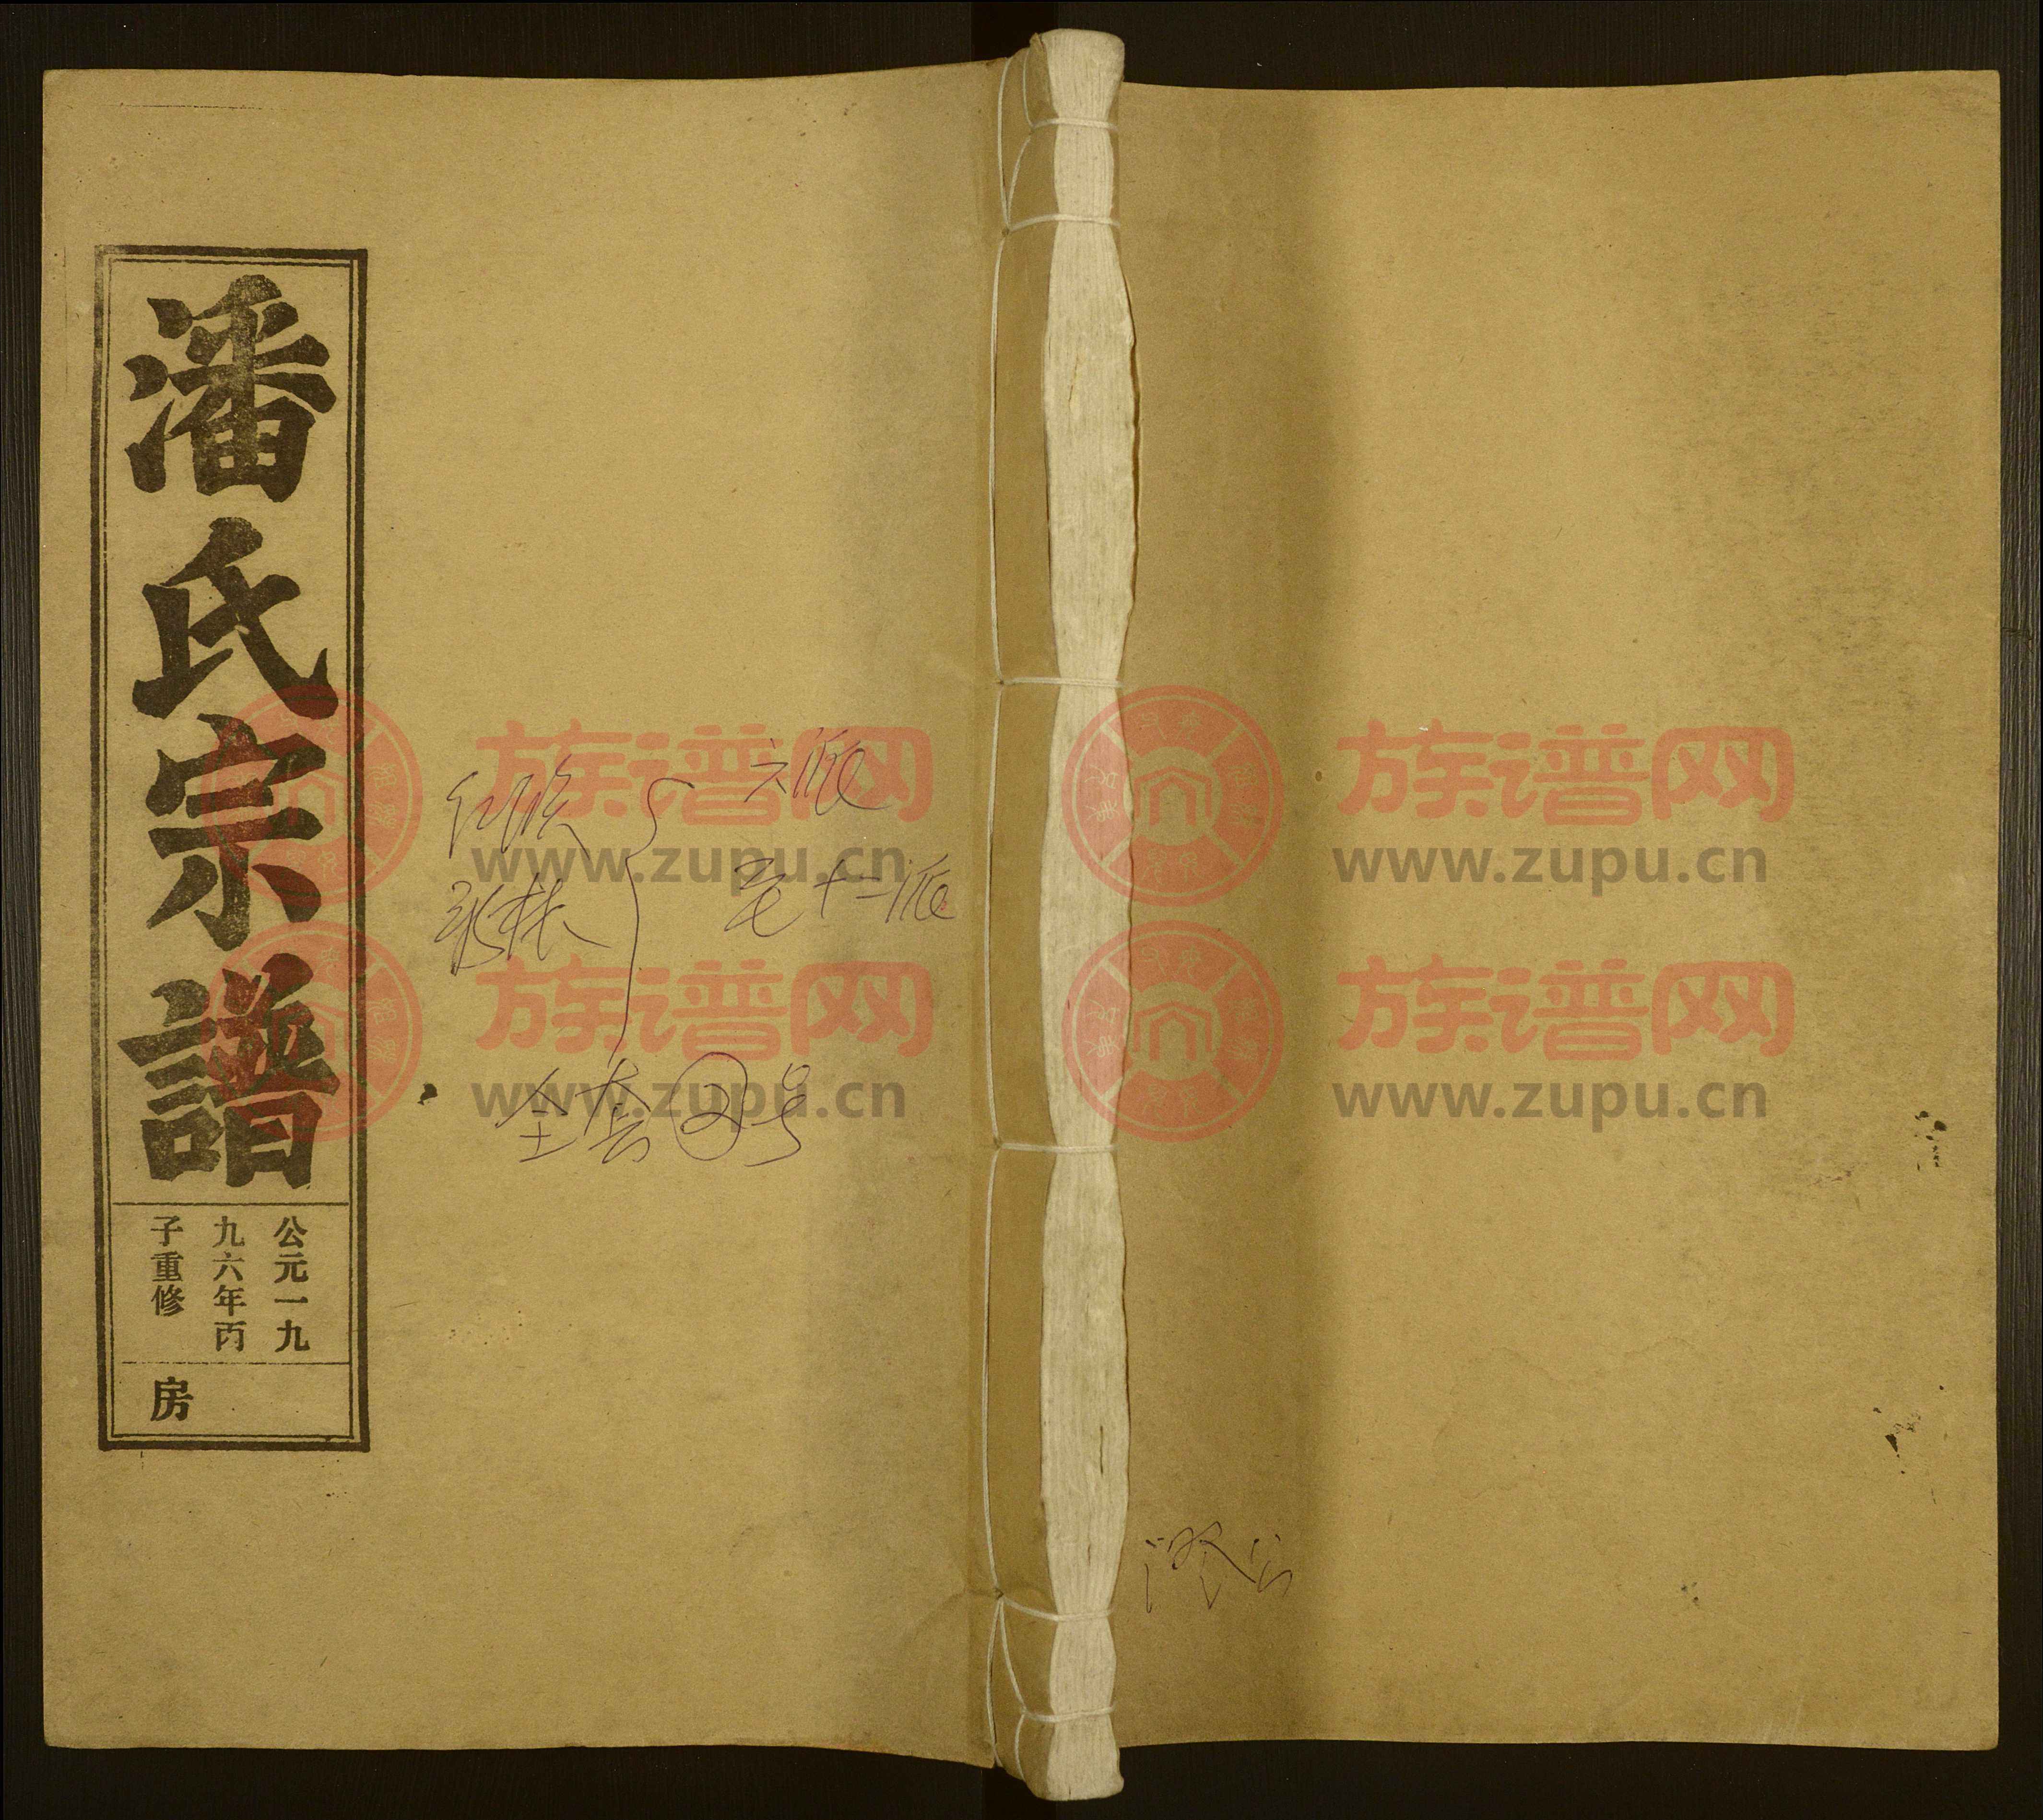 潘氏宗譜
公元一九
九六年丙
子重修
房
六派
至十二派
全套②号
族谱网
www.zupu.cn
族谱网
www.zupu.cn
族谱网
www.zupu.cn
族谱网
www.zupu.cn